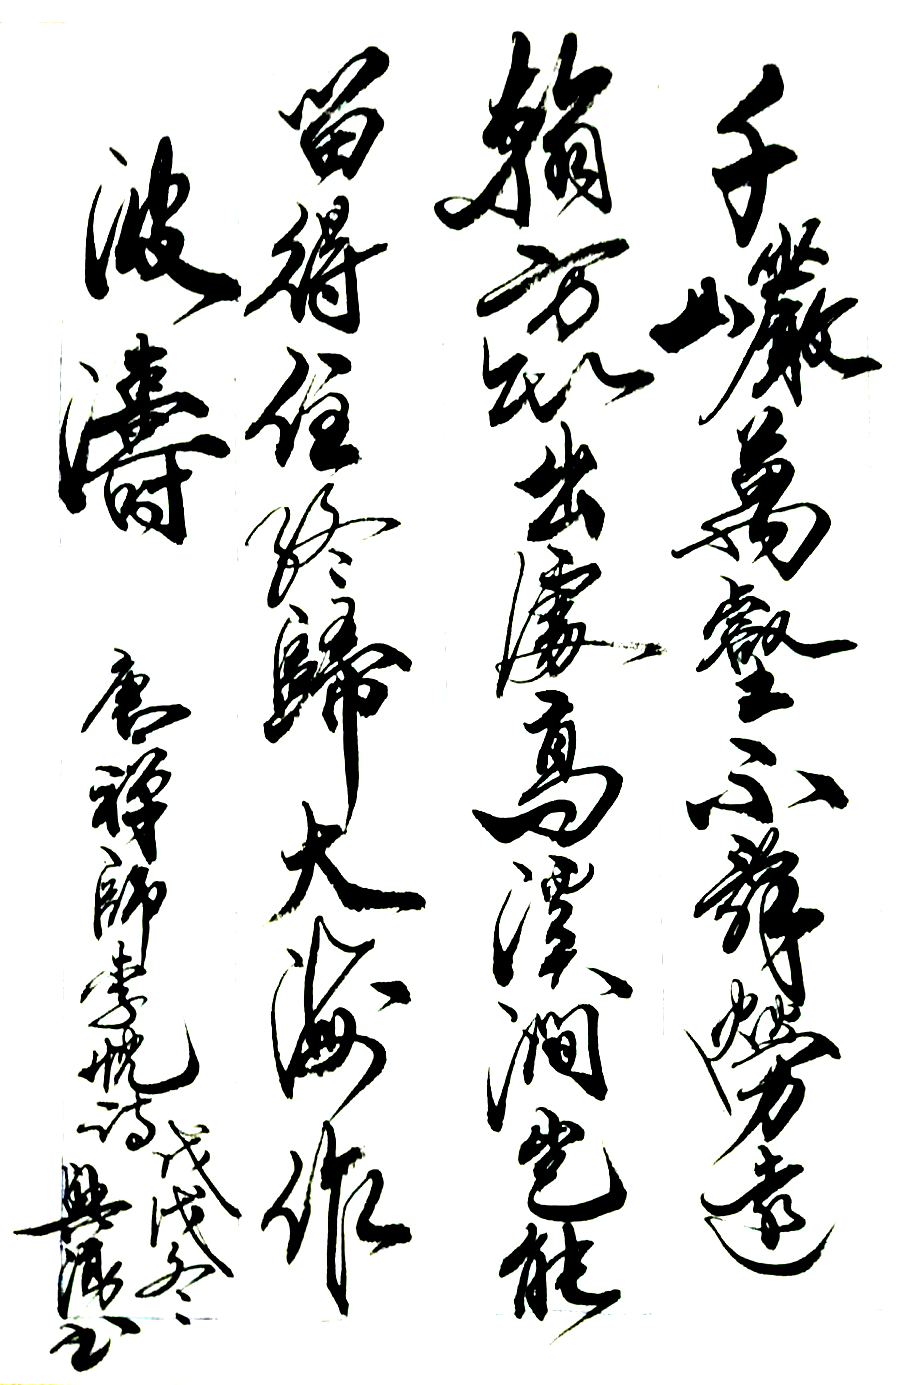 千巖萬壑不辭勞遠
翰方知出處高溪澗豈能
留得住終歸大海作
波濤
唐禪師李忱詩
戊戌冬
興书